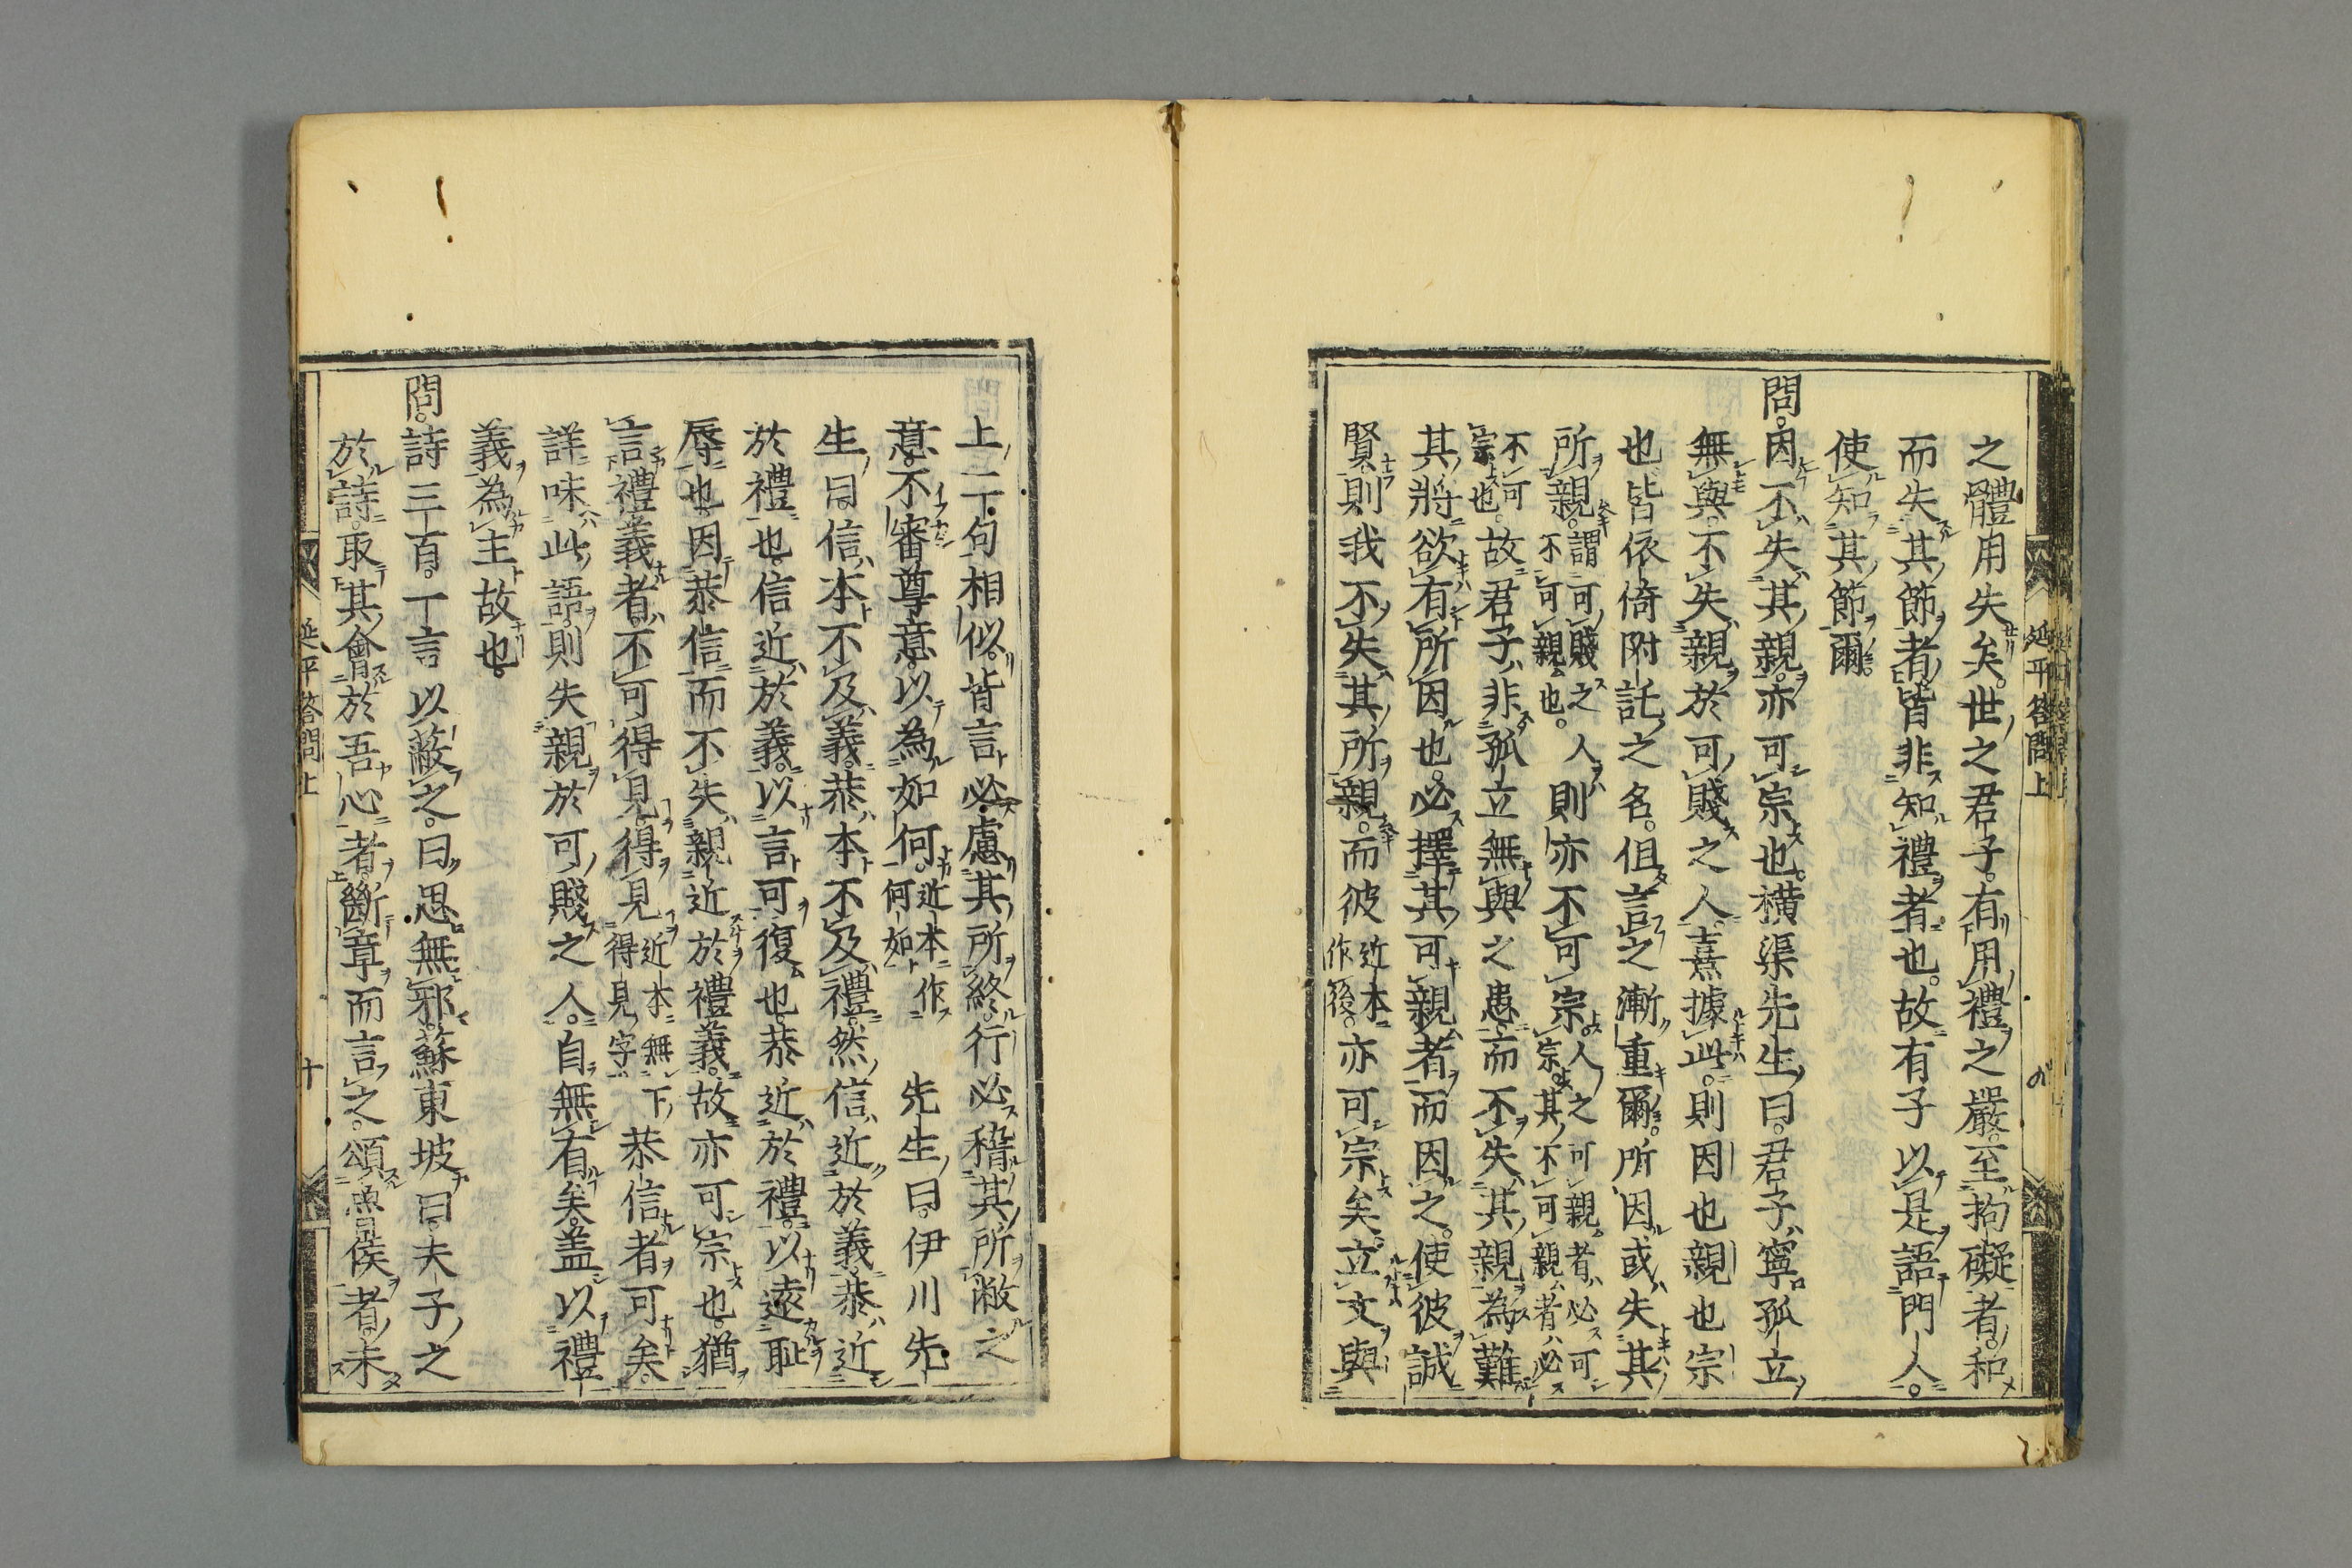 之體用失矣。世之君子。有用禮之嚴。至拘礙者。和
而失其節者。皆非知禮者也。故有子以是語門人。
使知其節爾。
問。因不失其親。亦可宗也。橫渠先生曰。君子寧孤立
無與。不失親於可賤之人。熹據此。則因也親也宗
也皆依倚附託之名。但言之漸重爾。所因或失其
所親。謂可賤之人不可親也。則亦不可宗。人之可親者必可宗。其不可親者必
不可宗也。故君子非孤立無與之患。而不失其親為難。
其將欲有所因也。必擇其可親者而因之。使彼誠
賢則我不失其所親。而彼近本作後。亦可宗矣。立文與
延平答問上
上二句相似。皆言必慮其所終。行必稽其所敝之
意。不審尊意以為如何。近本作何如 先生曰。伊川先
生曰。信本不及義。恭本不及禮。然信近於義。恭近
於禮也。信近於義。以言可復也。恭近於禮。以遠恥
辱也。因恭信而不失親近於禮義。故亦可宗也。猶
言禮義者。不可得見。得見近本無下得見字恭信者可矣。
詳味此語。則失親於可賤之人。自無有矣。盖以禮
義為主故也。
問。詩三百。一言以蔽之。曰。思無邪。蘇東坡曰。夫子之
於詩。取其會於吾心者。斷章而言之。頌魯侯者。未
延平答問上
十